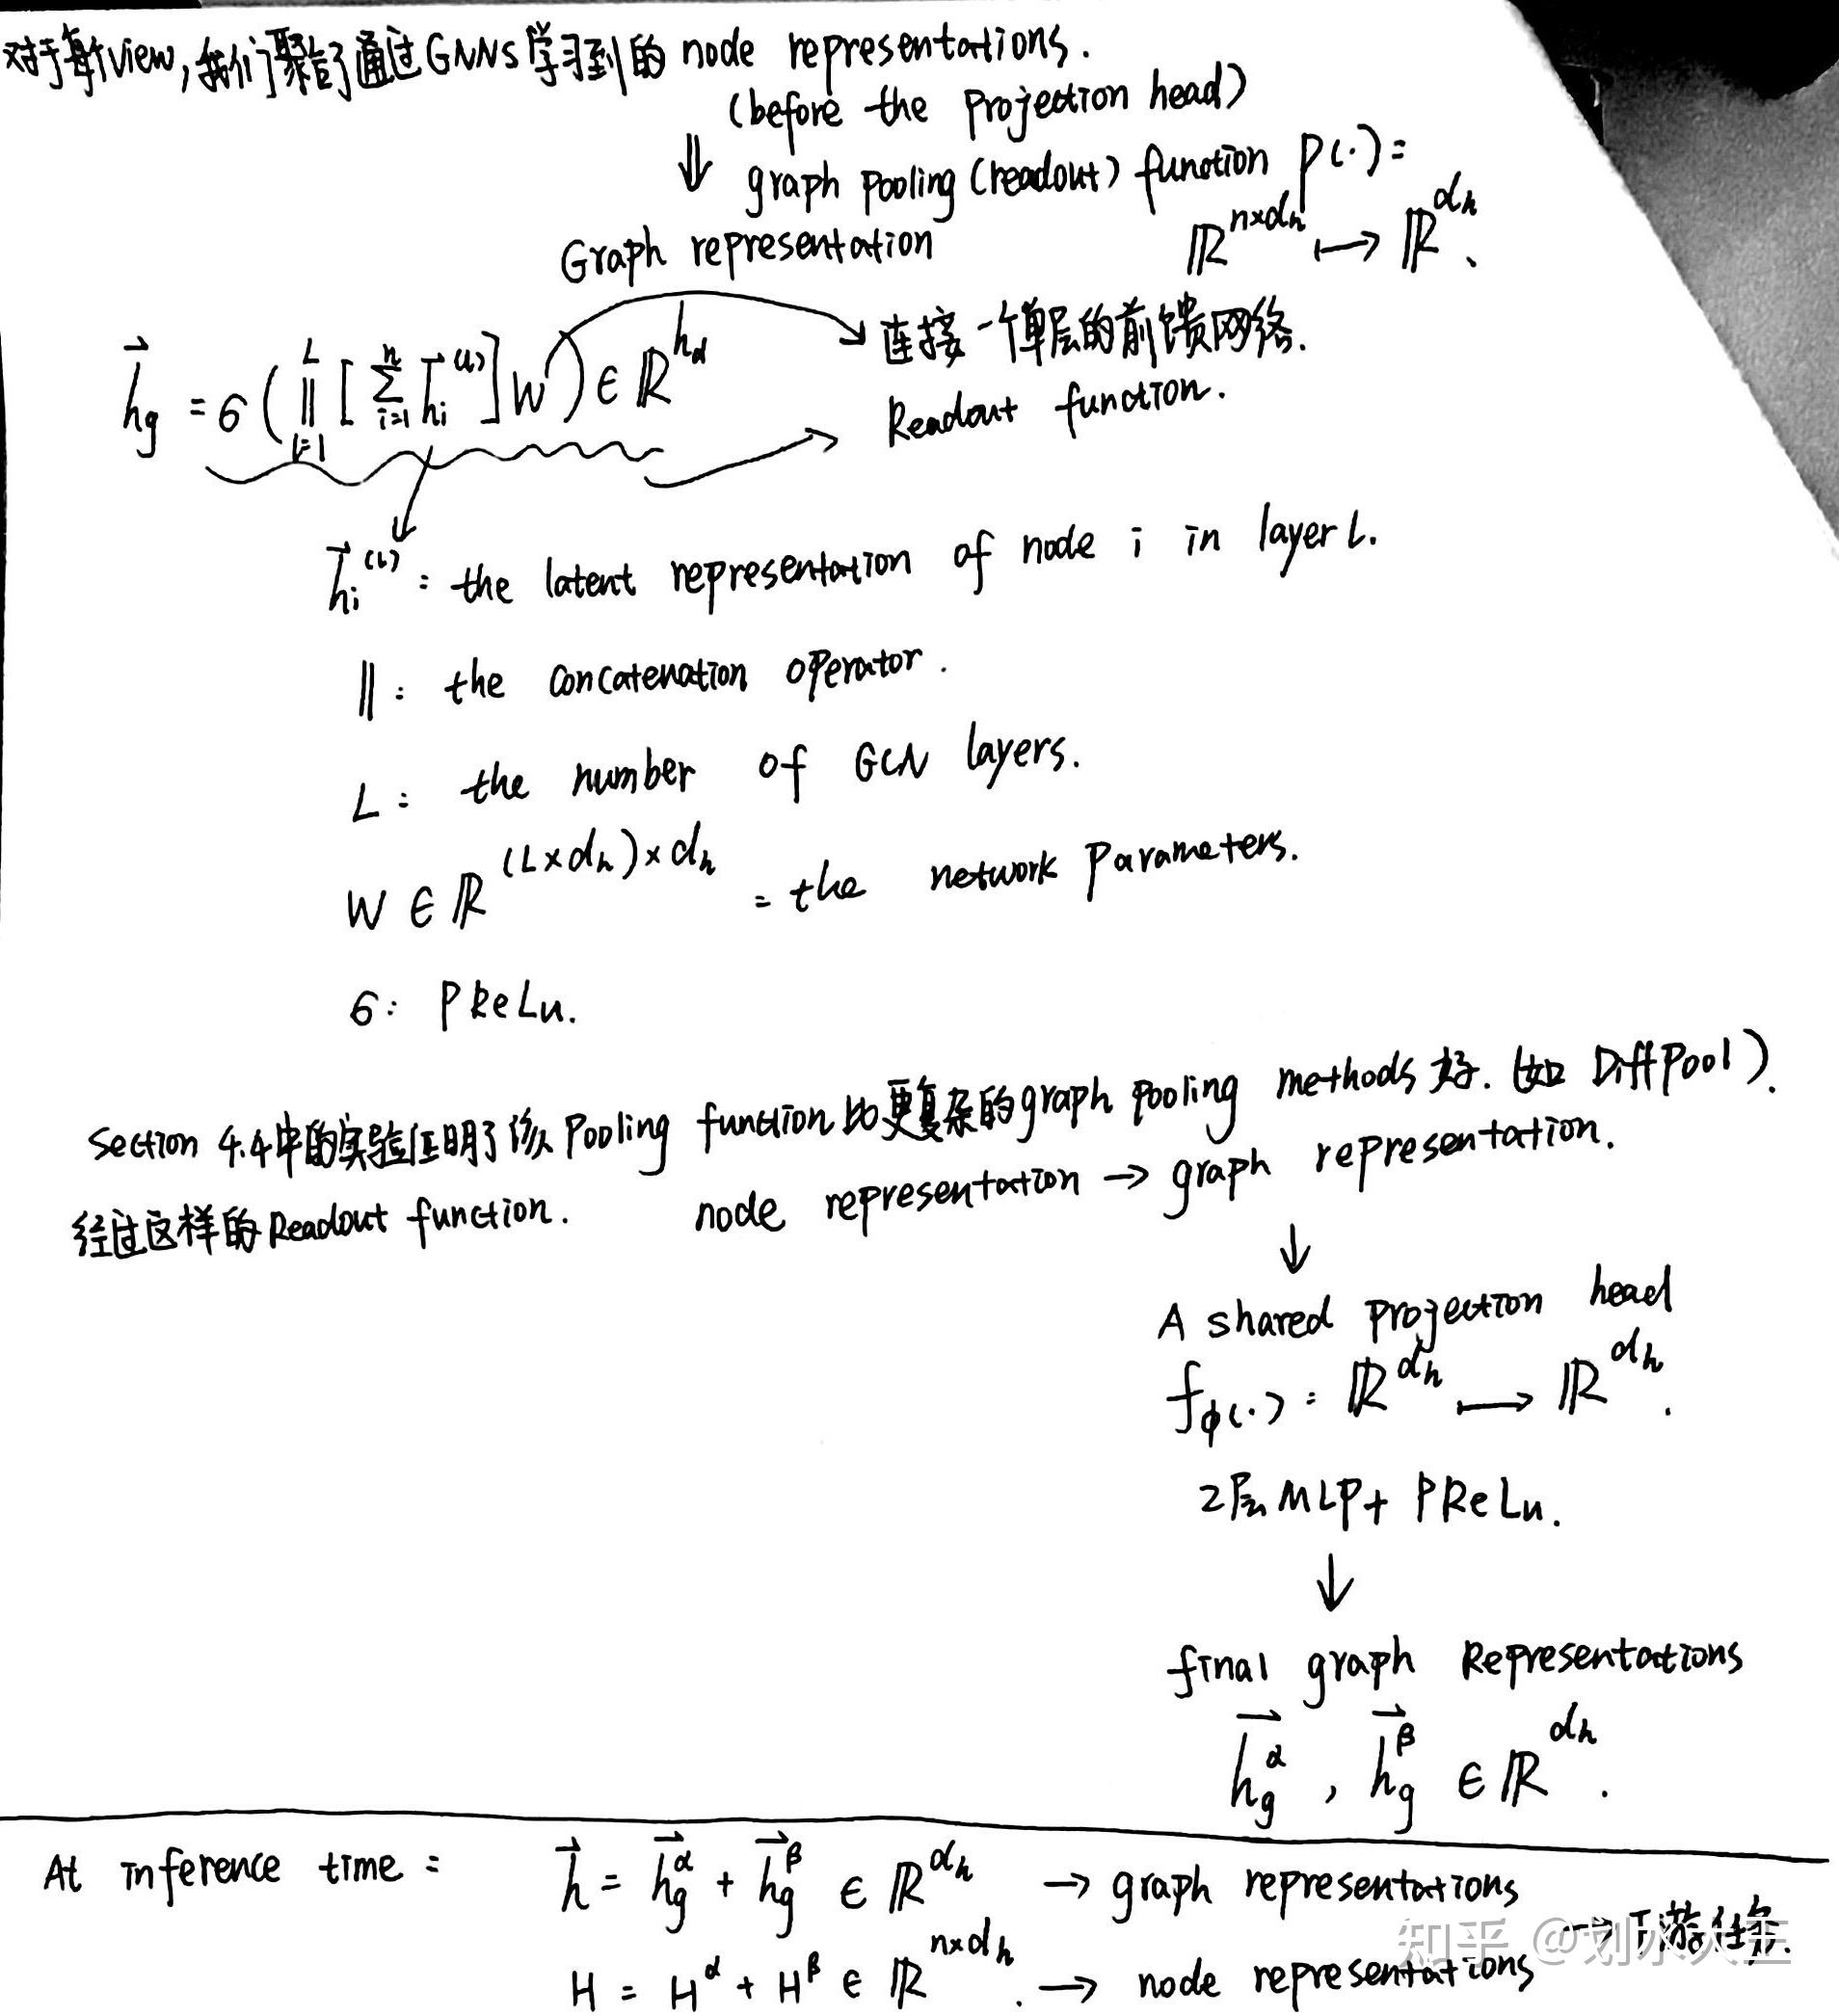 对于每个view,我们聚合了通过GNNs学习到的 node representations.
(before the projection head)
⇓ graph pooling (readout) function P(·):
Graph representation ℝ^{n×d_h} ↦ ℝ^{d_h}.
连接一个单层的前馈网络.
\vec{h}_g = σ(‖_{l=1}^{L} [Σ_{i=1}^{n} \vec{h}_i^{(l)}] W) ∈ ℝ^{h_d}
Readout function.
\vec{h}_i^{(l)}: the latent representation of node i in layer l.
‖: the concatenation operator.
L: the number of GCN layers.
W ∈ ℝ^{(L×d_h)×d_h}: the network parameters.
σ: PReLu.
Section 4.4中的实验证明了该 Pooling function 比更复杂的graph pooling methods 好. (如 DiffPool).
经过这样的Readout function. node representation → graph representation.
↓
A shared projection head
f_φ(·): ℝ^{d_h} ↦ ℝ^{d_h}.
2层MLP + PReLu.
↓
final graph Representations
\vec{h}_g^α, \vec{h}_g^β ∈ ℝ^{d_h}.
At inference time: \vec{h} = \vec{h}_g^α + \vec{h}_g^β ∈ ℝ^{d_h} → graph representations
→ 下游任务.
H = H^α + H^β ∈ ℝ^{n×d_h}. → node representations
知乎 @划水大王